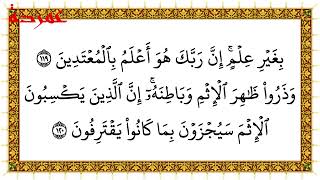 بِغَيْرِ عِلْمٍۗ إِنَّ رَبَّكَ هُوَ أَعْلَمُ بِالْمُعْتَدِينَ ١١٩
وَذَرُواْ ظَٰهِرَ الْإِثْمِ وَبَاطِنَهُۥٓۚ إِنَّ الَّذِينَ يَكْسِبُونَ
الْإِثْمَ سَيُجْزَوْنَ بِمَا كَانُواْ يَقْتَرِفُونَ ١٢٠